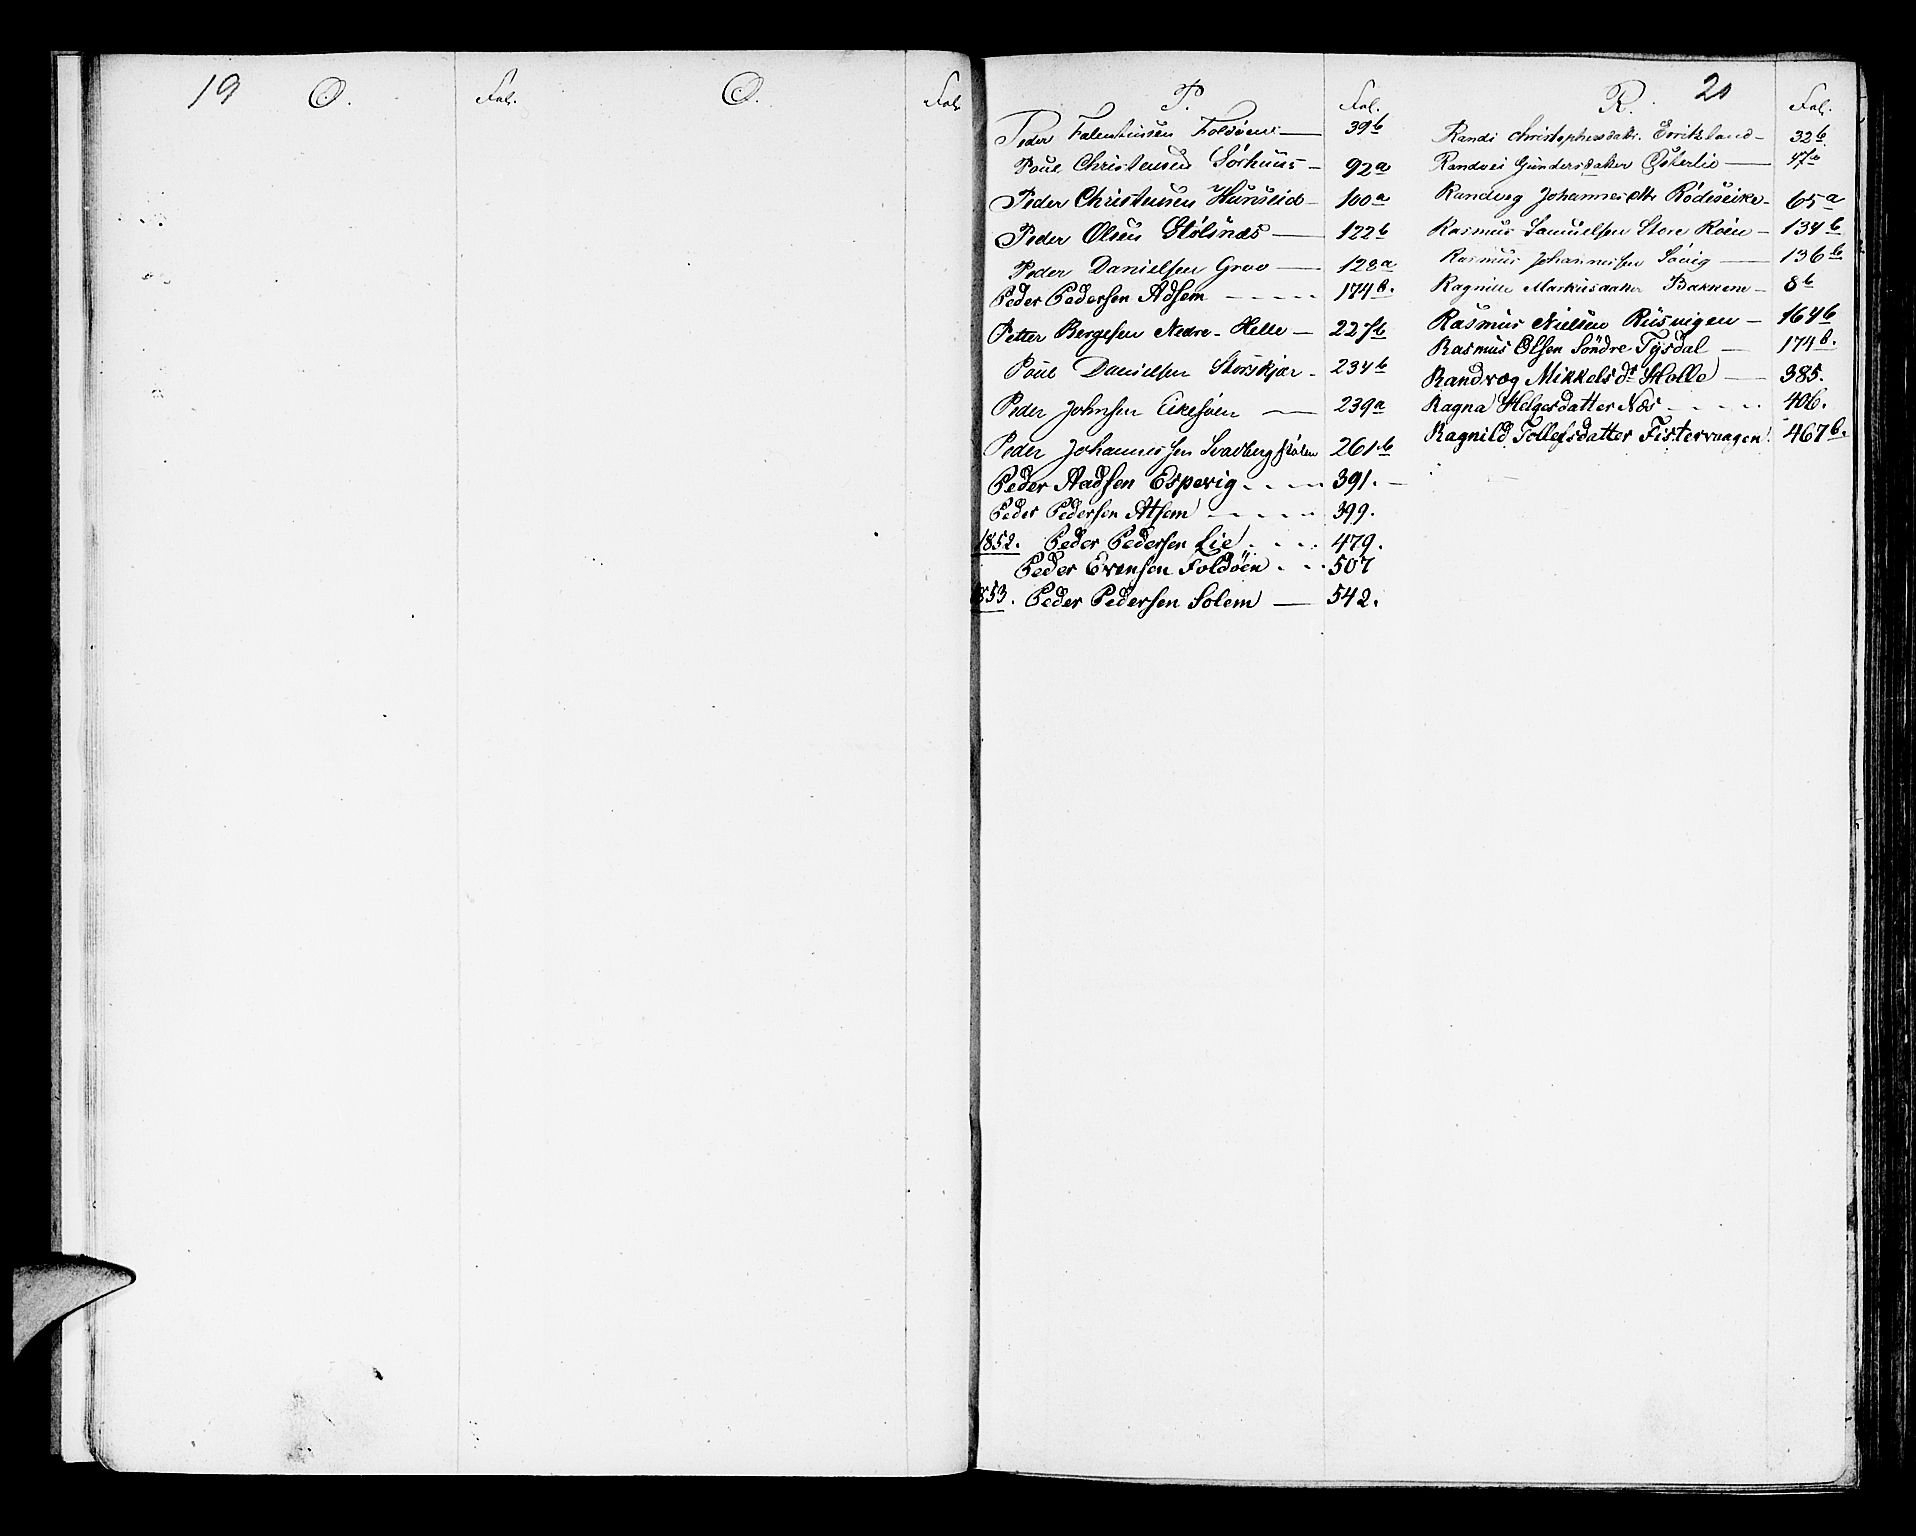 19
O.
Fol.
O.
Fol.
P.
Fol.
Peder Falentinsen Foldøen — 39b
Poul Christensen Sørhuus — 92a
Peder Christensen Hunseid — 100a
Peder Olsen Stølsnæs — 122b
Peder Danielsen Groo — 128a
Peder Pedersen Adsem - - - - 174b.
Petter Bergesen Nedre-Helle — 227b
Poul Danielsen Storskjær - 234b
Peder Johnsen Eikesøen — 239a
Peder Johannessen Svadbergstølen 261b
Peder Aadsen Espevig - - - - 391. —
Peder Pedersen Atsem - - - - 399.
1852. Peder Pedersen Lie - - - 479.
Peder Evensen Foldöen - - - 507
1853. Peder Pedersen Solem — 542.
20
R.
Fol.
Randi Christophersdatr. Erritsland — 32b
Randvei Gundersdatter Østerlie — 47b
Randveg Johannesdtr Rødseike — 65a
Rasmus Samuelsen Store Röen — 134b
Rasmus Johannessen Søvig — 136b
Ragnille Markusdatter Bakkem — 8b
Rasmus Nielsen Riisvigen — 164b
Rasmus Olsen Söndre Tysdal — 174b.
Randvæg Mikkelsdr. Holle — 385.
Ragna Helgesdatter Næs - - - - 406.
Ragnild Tollefsdatter Fistervaagen 467b.